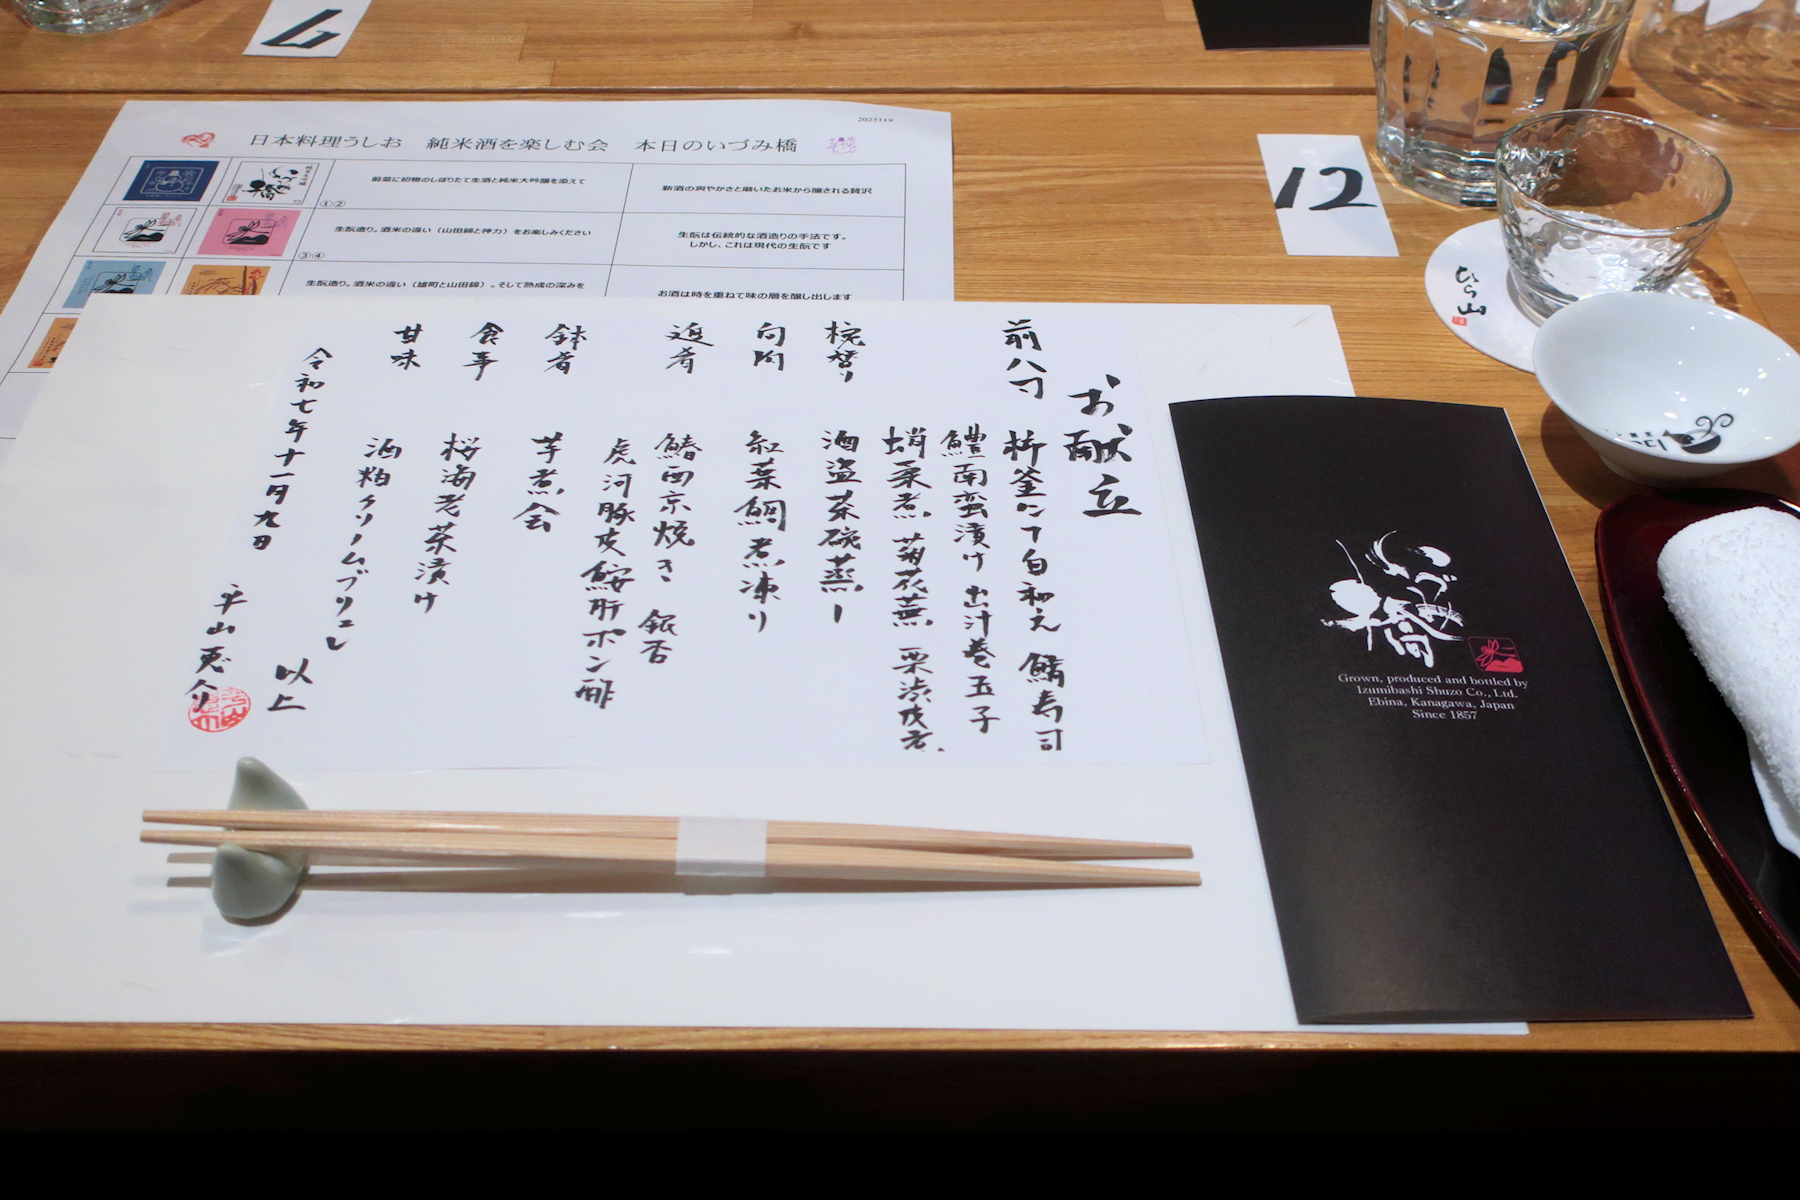 2025119
日本料理うしお 純米酒を楽しむ会 本日のいづみ橋
前菜に初物のしぼりたて生酒と純米大吟醸を添えて
新酒の爽やかさと磨いたお米から醸される贅沢
①②
生酛造り。酒米の違い（山田錦と神力）をお楽しみください
生酛は伝統的な酒造りの手法です。
しかし、これは現代の生酛です
③④
生酛造り。酒米の違い（雄町と山田錦）。そして熟成の深みを
お酒は時を重ねて味の層を醸し出します
12
ひら山
お献立
前八寸 柿釜にて白和え 鯖寿司
鱧南蛮漬け 出汁巻玉子
蛸柔煮 菊花蕪 栗渋皮煮
椀替り 酒盗茶碗蒸し
向附 紅葉鯛煮凍り
進肴 鰆西京焼き 銀杏
虎河豚皮鮟肝ポン酢
鉢肴 芋煮会
食事 桜海老茶漬け
甘味 酒粕クリームブリュレ
以上
令和七年十一月九日
いづみ橋
Grown, produced and bottled by
Izumibashi Shuzo Co., Ltd.
Ebina, Kanagawa, Japan
Since 1857